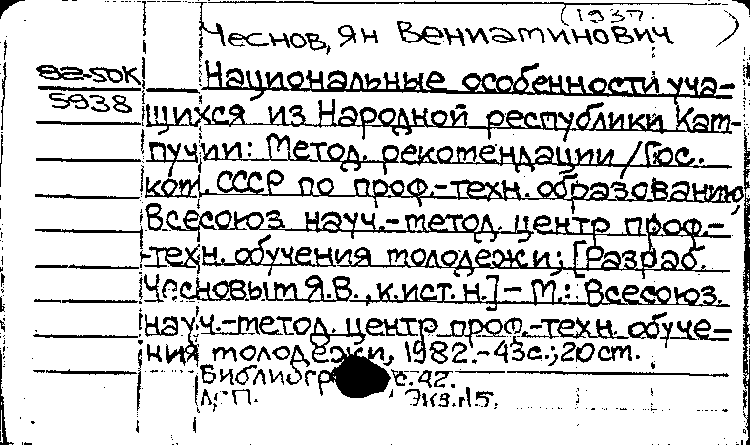 (1937.
Чеснов, Ян Вениаминович
82-50К Национальные особенности уча-
5938 щихся из Народной республики Кам-
пучии: Метод. рекомендации / Гос.
ком. СССР по проф.-техн. образованию,
Всесоюз. науч.-метод. центр проф.-
-техн. обучения молодежи; [Разраб.
Чесновым Я.В., к.ист.н.] - М.: Всесоюз.
науч.-метод. центр проф.-техн. обуче-
ния молодежи, 1982.-43с.; 20см.
с.42.